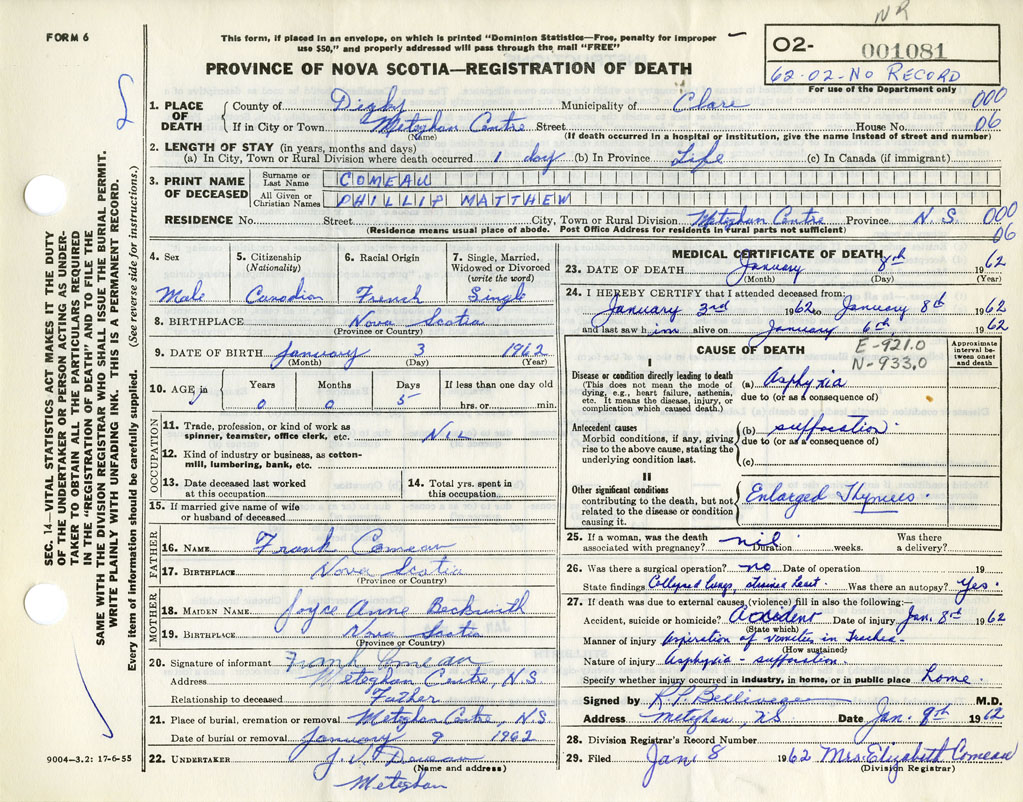 NR
FORM 6
This form, if placed in an envelope, on which is printed "Dominion Statistics—Free, penalty for improper
use $50," and properly addressed will pass through the mail "FREE"
PROVINCE OF NOVA SCOTIA—REGISTRATION OF DEATH
02- 001081
62-02-No RECORD
For use of the Department only
1. PLACE OF DEATH County of Digby Municipality of Clare 000
If in City or Town Meteghan Centre Street House No. 06
(Name) (If death occurred in a hospital or institution, give the name instead of street and number)
2. LENGTH OF STAY (in years, months and days)
(a) In City, Town or Rural Division where death occurred 1 day (b) In Province Life (c) In Canada (if immigrant)
3. PRINT NAME OF DECEASED
Surname or Last Name COMEAU
All Given or Christian Names PHILLIP MATTHEW
RESIDENCE No. Street City, Town or Rural Division Meteghan Centre Province N.S 000
(Residence means usual place of abode. Post Office Address for residents in rural parts not sufficient) 06
4. Sex Male
5. Citizenship (Nationality) Canadian
6. Racial Origin French
7. Single, Married, Widowed or Divorced (write the word) Single
8. BIRTHPLACE Nova Scotia
(Province or Country)
9. DATE OF BIRTH January 3 1962
(Month) (Day) (Year)
10. AGE in Years Months Days If less than one day old
0 0 5 hrs. or min.
OCCUPATION
11. Trade, profession, or kind of work as
spinner, teamster, office clerk, etc. Nil
12. Kind of industry or business, as cotton-
mill, lumbering, bank, etc.
13. Date deceased last worked at this occupation
14. Total yrs. spent in this occupation
15. If married give name of wife
or husband of deceased
FATHER
16. NAME Frank Comeau
17. BIRTHPLACE Nova Scotia
(Province or Country)
MOTHER
18. MAIDEN NAME Joyce Anne Beckwith
19. BIRTHPLACE Nova Scotia
(Province or Country)
20. Signature of informant Frank Comeau
Address Meteghan Centre, N.S
Relationship to deceased Father
21. Place of burial, cremation or removal Meteghan Centre, N.S
Date of burial or removal January 9 1962
22. UNDERTAKER J.
(Name and address)
Meteghan
MEDICAL CERTIFICATE OF DEATH
23. DATE OF DEATH January 8th 1962
(Month) (Day) (Year)
24. I HEREBY CERTIFY that I attended deceased from:
January 3rd 1962 to January 8th 1962
and last saw him alive on January 6th 1962
CAUSE OF DEATH
E-921.0
N-933.0
Approximate interval between onset and death
I
Disease or condition directly leading to death
(This does not mean the mode of
dying, e.g., heart failure, asthenia,
etc. It means the disease, injury, or
complication which caused death.)
(a) Asphyxia
due to (or as a consequence of)
Antecedent causes
Morbid conditions, if any, giving
rise to the above cause, stating the
underlying condition last.
(b) suffocation
due to (or as a consequence of)
(c)
II
Other significant conditions
contributing to the death, but not
related to the disease or condition
causing it.
Enlarged Thymus.
25. If a woman, was the death
associated with pregnancy? nil Duration weeks. Was there
a delivery?
26. Was there a surgical operation? no Date of operation 19
State findings Collapsed lungs, heart. Was there an autopsy? Yes.
27. If death was due to external causes (violence) fill in also the following:—
Accident, suicide or homicide? Accident Date of injury Jan. 8th 1962
(State which)
Manner of injury Aspiration of Vomitus in Trachea.
(How sustained)
Nature of injury Asphyxia - suffocation.
Specify whether injury occurred in industry, in home, or in public place home.
Signed by R.P. Belliveau M.D.
Address Meteghan, N.S Date Jan. 9th 1962
28. Division Registrar's Record Number
29. Filed Jan. 8 1962 Mrs. Elizabeth Comeau
(Division Registrar)
SEC. 14—VITAL STATISTICS ACT MAKES IT THE DUTY
OF THE UNDERTAKER OR PERSON ACTING AS UNDER-
TAKER TO OBTAIN ALL THE PARTICULARS REQUIRED
IN THE "REGISTRATION OF DEATH" AND TO FILE THE
SAME WITH THE DIVISION REGISTRAR WHO SHALL ISSUE THE BURIAL PERMIT.
WRITE PLAINLY WITH UNFADING INK. THIS IS A PERMANENT RECORD.
Every item of information should be carefully supplied. (See reverse side for instructions.)
9004-3.2: 17-6-55